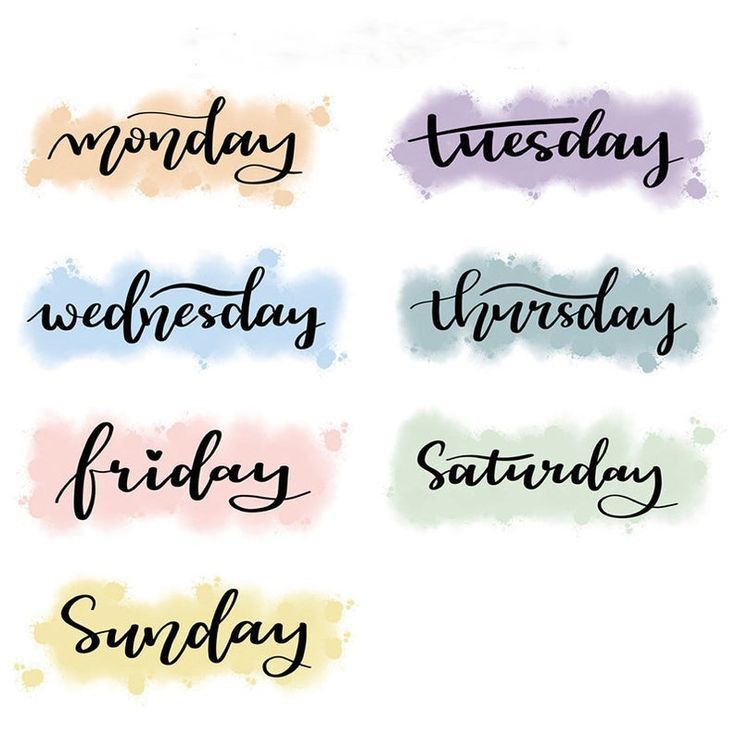 monday
tuesday
wednesday
thursday
friday
Saturday
Sunday